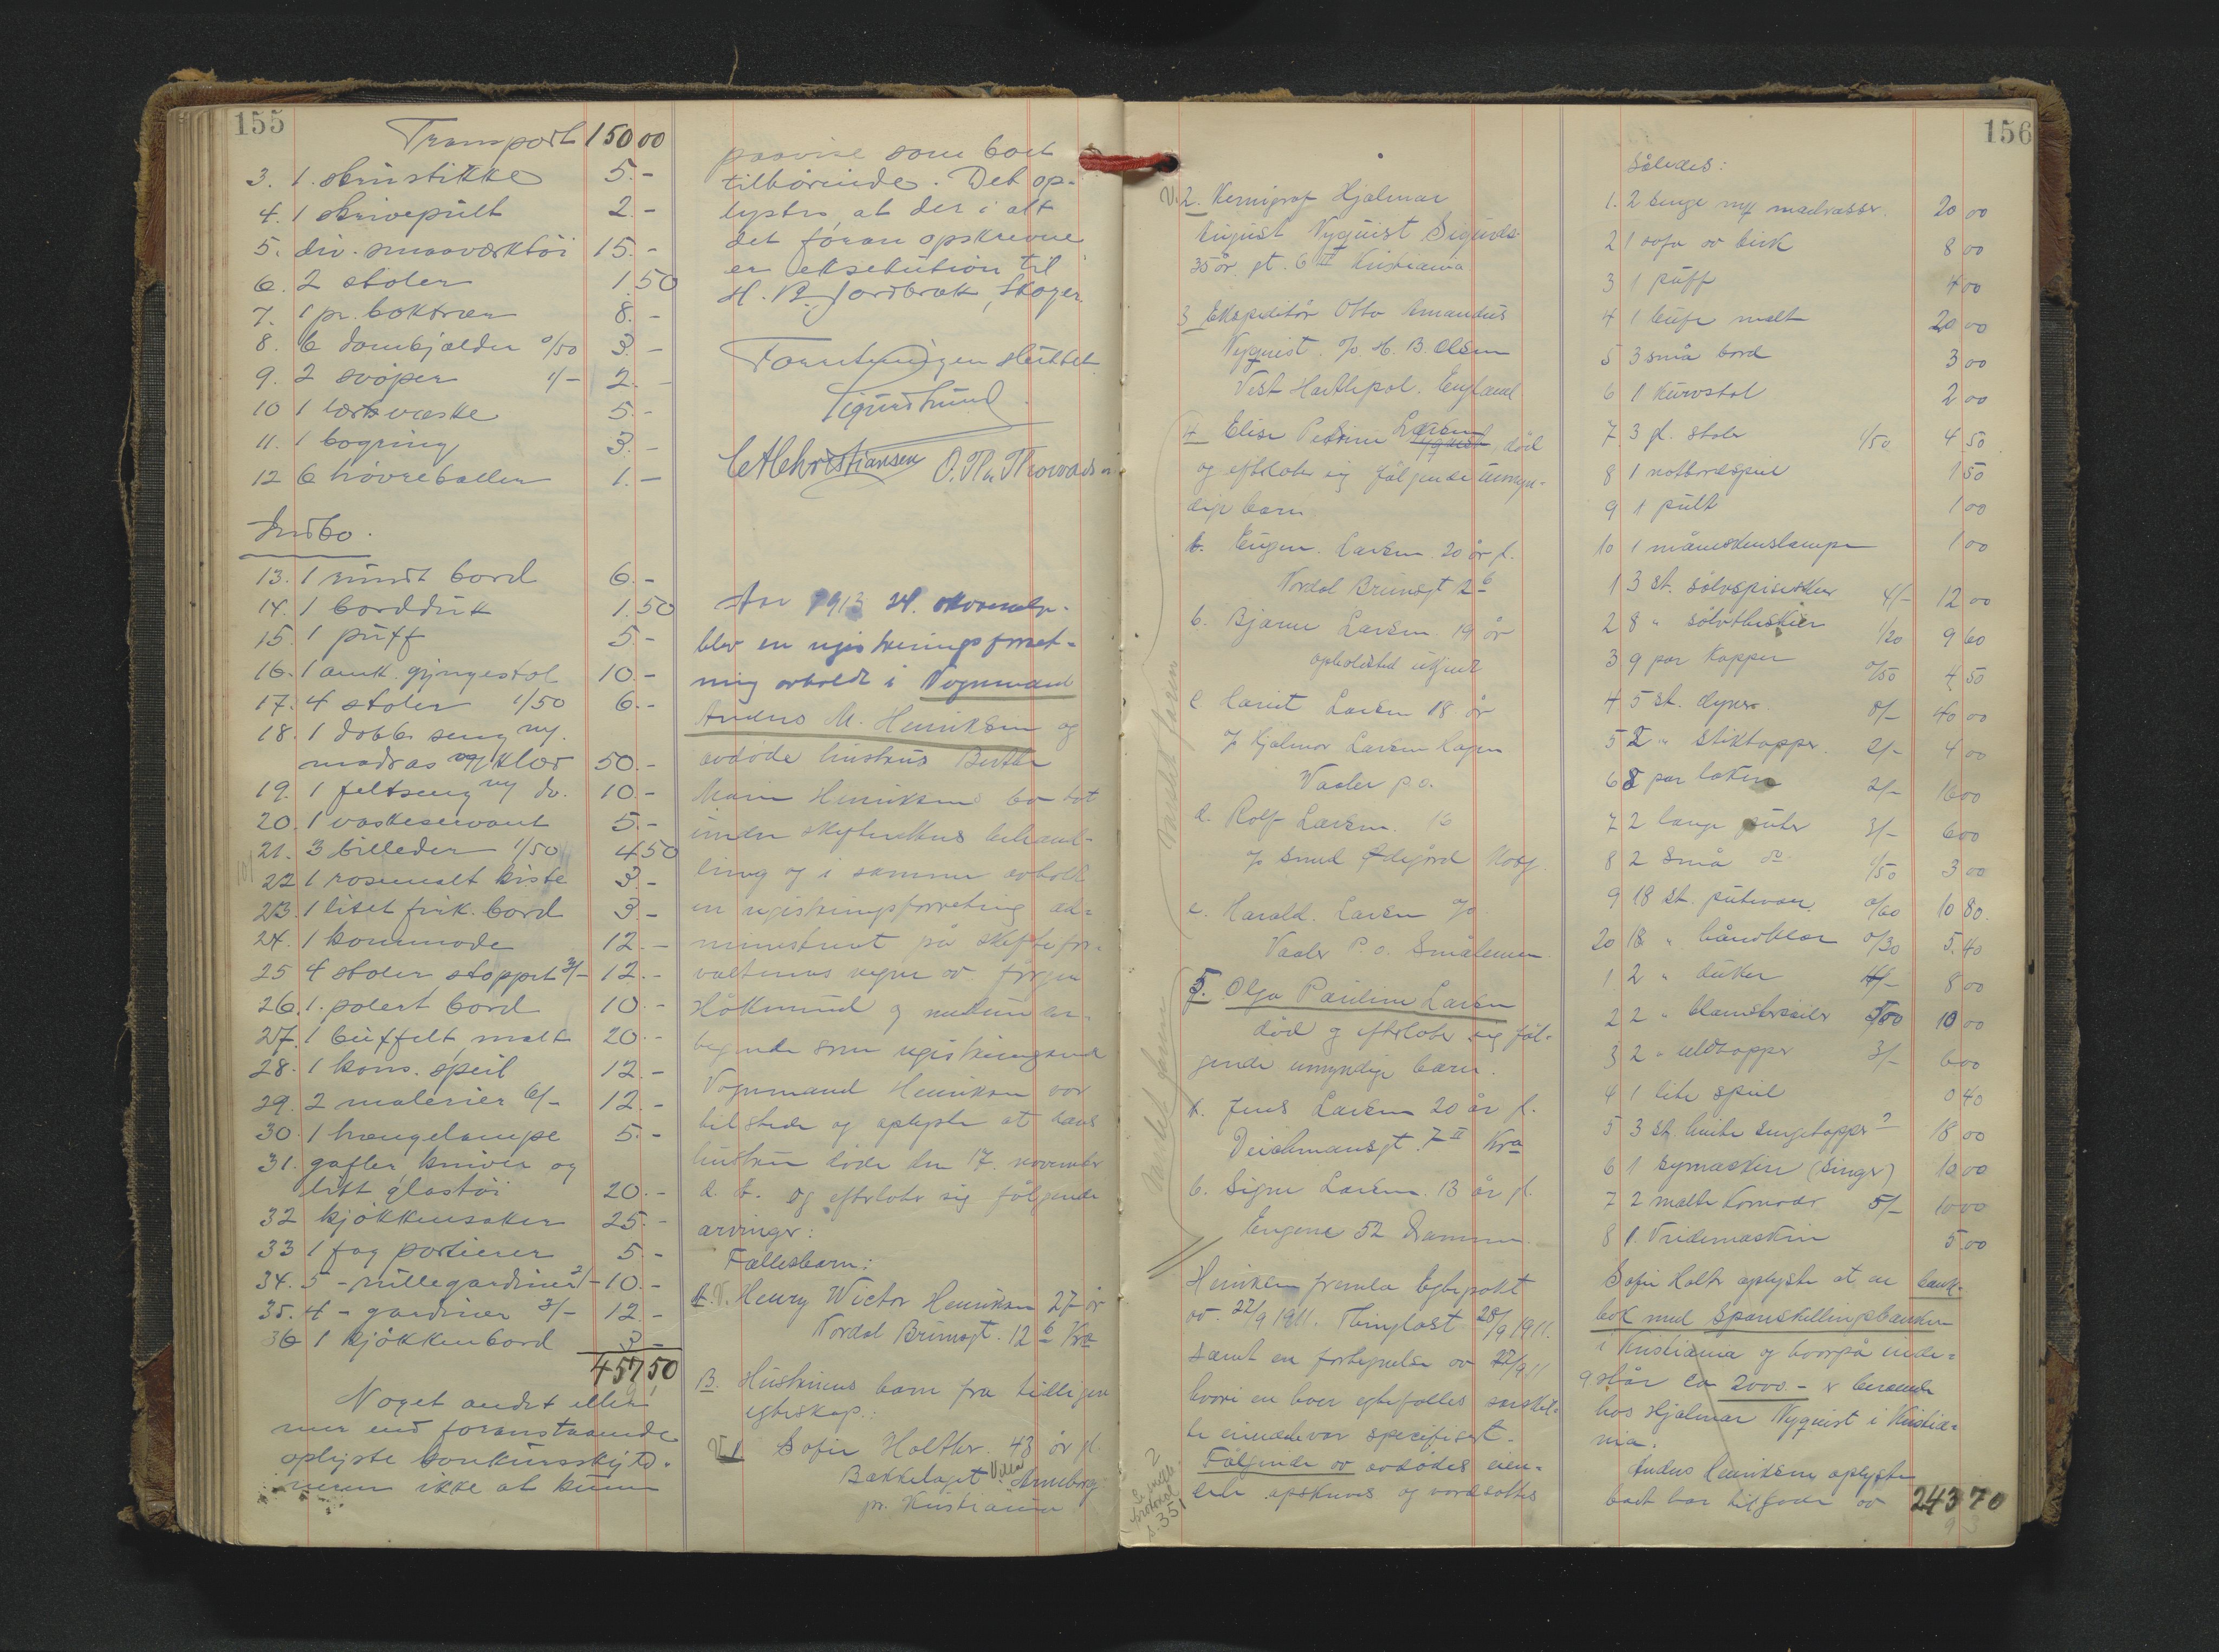 155
Transport 150 00
3. 1 skrustikke 5.-
4. 1 skrivepult 2.-
5. div. smaaværktøi 15.-
6. 2 stoler 1.50
7. 1 pr. boktrær 8.-
8. 6 dombjælder 0/50 3.-
9. 2 svøper 1/- 2.-
10 1 værske 5.-
11. 1 bogring 3.-
12 6 høvreballer 1.-
Indbo.
13. 1 rundt bord 6.-
14. 1 bordduk 1.50
15. 1 puff 5.-
16. 1 amk. gyngestol 10.-
17. 4 stoler 1/50 6.-
18. 1 dobb. seng m/
madras og klær 50.-
19. 1 feltseng m/ do. 10.-
20. 1 vaskeservant 5.-
21. 3 billeder 1/50 4.50
22 1 rosemalt kiste 3.-
23. 1 litet firk. bord 3.-
24. 1 kommode 12.-
25 4 stoler, stoppet 3/- 12.-
26. 1 polert bord 10.-
27. 1 buffelt, malt 20.-
28. 1 kons. speil 12.-
29. 2 malerier 6/- 12.-
30. 1 hængelampe 5.-
31. gafler, kniver og
litt glastøi 20.-
32 kjøkkensaker 25.-
33 1 fag portierer 5.-
34. 5 - rullegardiner 2/- 10.-
35. 4 - gardiner 3/- 12.-
36 1 kjøkkenbord 3-
457 50
Noget andet eller
mer end foranstaaende
oplyste konkursskyld-
neren ikke at kunne
paavise som boet
tilhørende. Det op-
lystes, at der i alt
det foran opskrevne
er eksekution til
H. P. Jordbræk, Skoger
Forretningen sluttet.
Sigurd Lund
C A Christiansen O. Th. Thorvadsen
Aar 1913 24. november
blev en registreringsforret-
ning avholdt i Vognmand
Andres M. Henriksen og
avdøde hustrus Berthe
Marie Henriksens bo tat
under skifterettens behand-
ling og i samme avholdt
en registreringsforretning ad-
ministreret på skiftefor-
valterens vegne av
Håkensund og
som registreringsvid
Vognmand Henriksen var
tilstede og oplyste at hans
hustru døde den 17. november
d. å. og efterlater sig følgende
arvinger:
Fællesbarn:
A. V. Henry Victor Henriksen 27 år
Nordal Brunsgt. 12 b Kra
B. Hustruens barn fra tidligere
egteskap.:
V. 1 Sofie Holther. 43 år gl.
Bækkelaget Villa Anneborg
pr. Kristiania
156
V. 2. Kemigraf Hjalmar
August Nyquist Sigurds-
35 år gt. 6 II Kristiania
3 Ekspeditør Otto Amandus
Nyquist. % H. B. Olsen
Vest Hartlepol. England
4 Elise Petrine Larsen, død
og efterlater sig følgende umyn-
dige barn
a. Eugen Larsen 20 år f.
Nordal Brunsgt 2 b
b. Bjarne Larsen 19 år
opholdsted ukjendt
c Larsen 18 år
% Hjalmar Larsen Hagen
Vaaler p.o.
d. Rolf Larsen. 16
% Smed
e. Harald. Larsen %
Vaaler P.o. Smålenene
Varslet faren
5. Olga Pauline Larsen
død og efterlater sig føl-
gende umyndige barn.
a. Jens Larsen 20 år f.
Deichmansgt. 7 II Kra
b. Signe Larsen. 13 år gl.
Engene 52 Drammen
Varslet faren
Henriksen fremla Egtepakt
av. 22/9 1911. Thinglæst 28/9 1911.
samt en fortegnelse av 22/9 11
hvori en hver egtefælles særskil-
te eiendele var specifisert.
Følgende av avdødes eien-
dele opskreves og værdsattes
protokol s. 351
således:
1. 2 senge m/ madrasser. 20 00
2 1 sofa av birk 8 00
3 1 puff 4 00
4 1 bufe malt 20 00
5 3 små bord 3 00
6 1 kurvstol 2 00
7 3 gl. stoler 1/50 4 50
8 1 natbordspeil 1 50
9 1 pult 1 00
10 1 måneskinslampe 1 00
1 3 st. sølvspiseskeer 4/- 12 00
2 8 " sølvtheskeer 1/20 9 60
3 9 par kopper 0/50 4 50
4 5 st. dyner 8/- 40 00
5 2 " stiktæpper. 2/- 4 00
6 8 par laken 2/- 16 00
7 2 lange puter 3/- 6 00
8 2 små do 1/50 3 00
9 18 st. putevar 0/60 10 80.
20 18 " håndklær 0/30 5.40
1. 2 " duker 4/- 8 00
2 2 " 5/00 10 00
3 2 " uldtæpper 3/- 6 00
4 1 lite speil 0 40
5 3 st. hvite sengetæpper 18 00
6 1 symaskin (Singer) 10 00
7 2 malte komoder 5/- 10 00
8 1. Vridemaskin 5 00
Sofie Holter oplyste at en bank-
bok med Sparskillingsbanken
i Kristiania og hvorpå inde-
står ca 2000.- er beroende
hos Hjalmar Nyquist i Kristia-
nia.
Andres Henriksen oplyste
boet har tilgode av 243 70